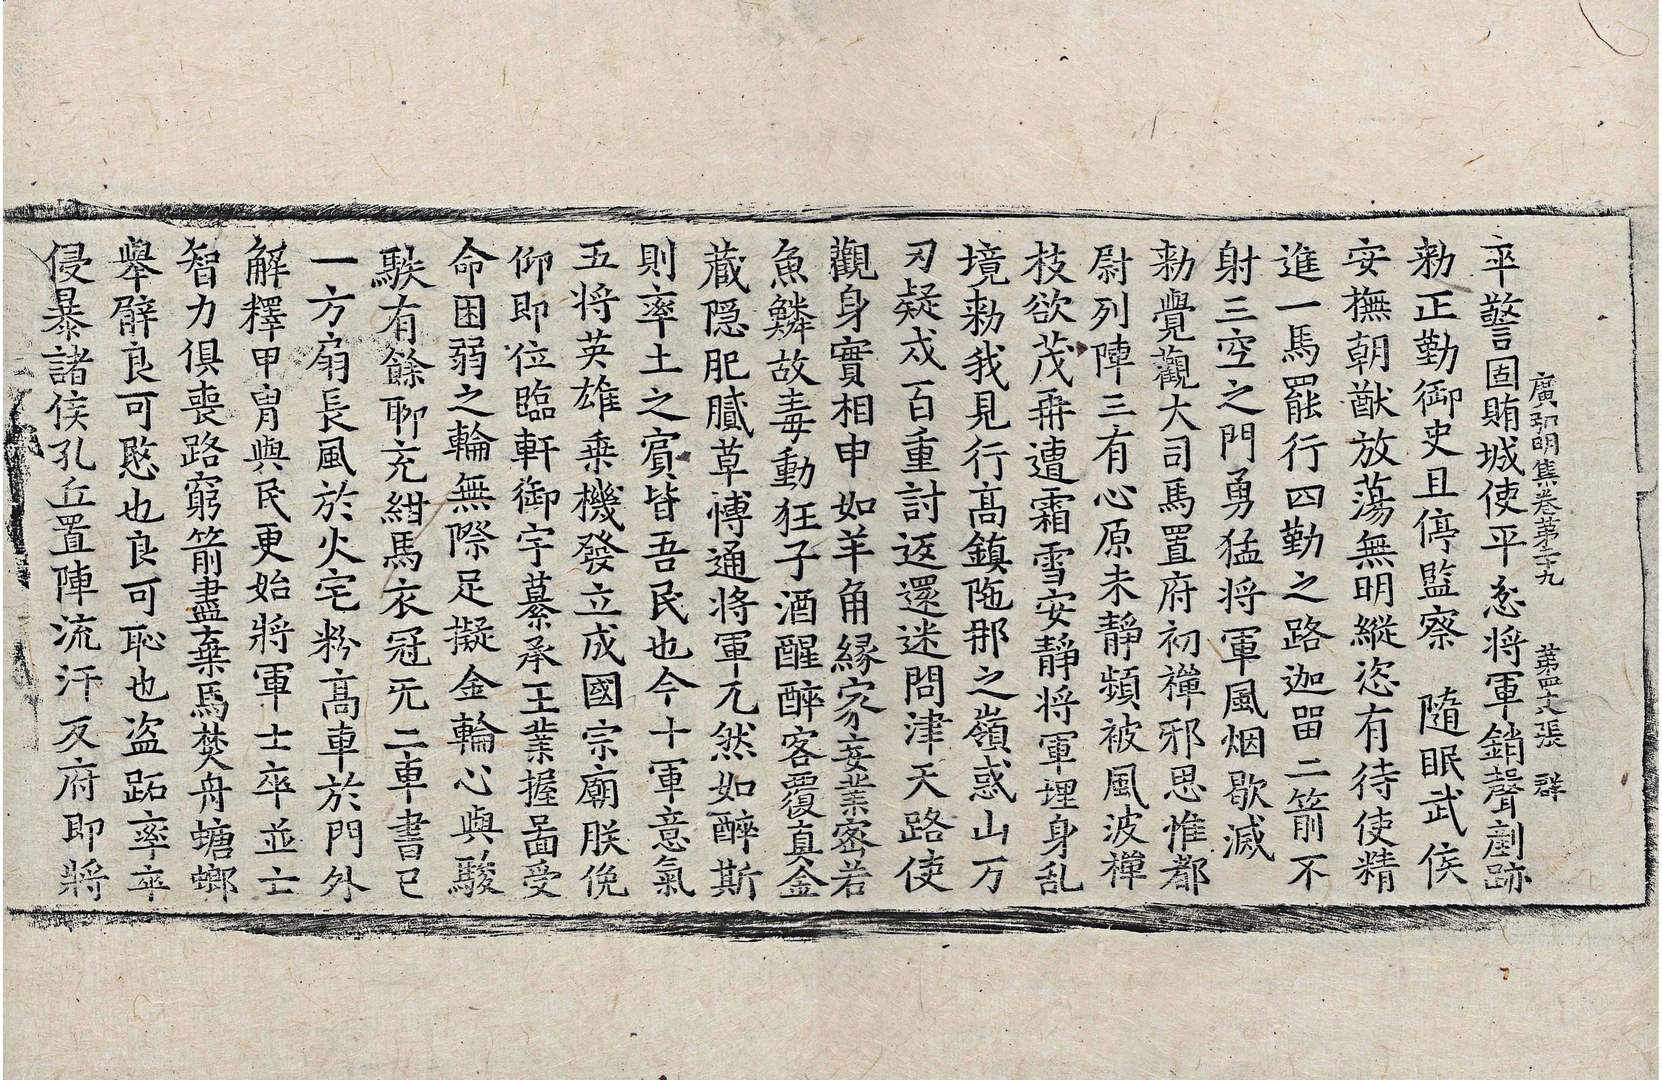 廣弘明集卷第二十九　第四丈張　群
平警固賄城使平忿將軍銷聲劃跡
勑正勤御史且停監察　隨眠武侯
安撫朝猷放蕩無明縱恣有待使精
進一馬罷行四勤之路迦留二箭不
射三空之門勇猛將軍風烟歇滅
勑覺觀大司馬置府初禪邪思惟都
尉列陣三有心原未靜頻被風波禪
枝欲茂再遭霜雪安靜將軍埋身乱
境勑我見行高鎮陁那之嶺惑山万
刃疑戍百重討返還迷問津天路使
觀身實相申如羊角緣家妄業密若
魚鱗故毒動狂子酒醒醉客覆真金
藏隱肥膩草愽通將軍兀然如醉斯
則率土之賓皆吾民也今十軍意氣
五將英雄乗機發立成國宗廟朕俛
仰即位臨軒御宇纂承王業握啚受
命困弱之輪無際足擬金輪心與駿
駃有餘聊充紺馬衣冠旡二車書已
一方扇長風於火宅粉高車於門外
解釋甲胄與民更始將軍士卒並士
智力俱喪路窮箭盡棄馬焚舟螗蜋
舉臂良可愍也良可恥也盜跖率卒
侵暴諸侯孔丘置陣流汗反府即將